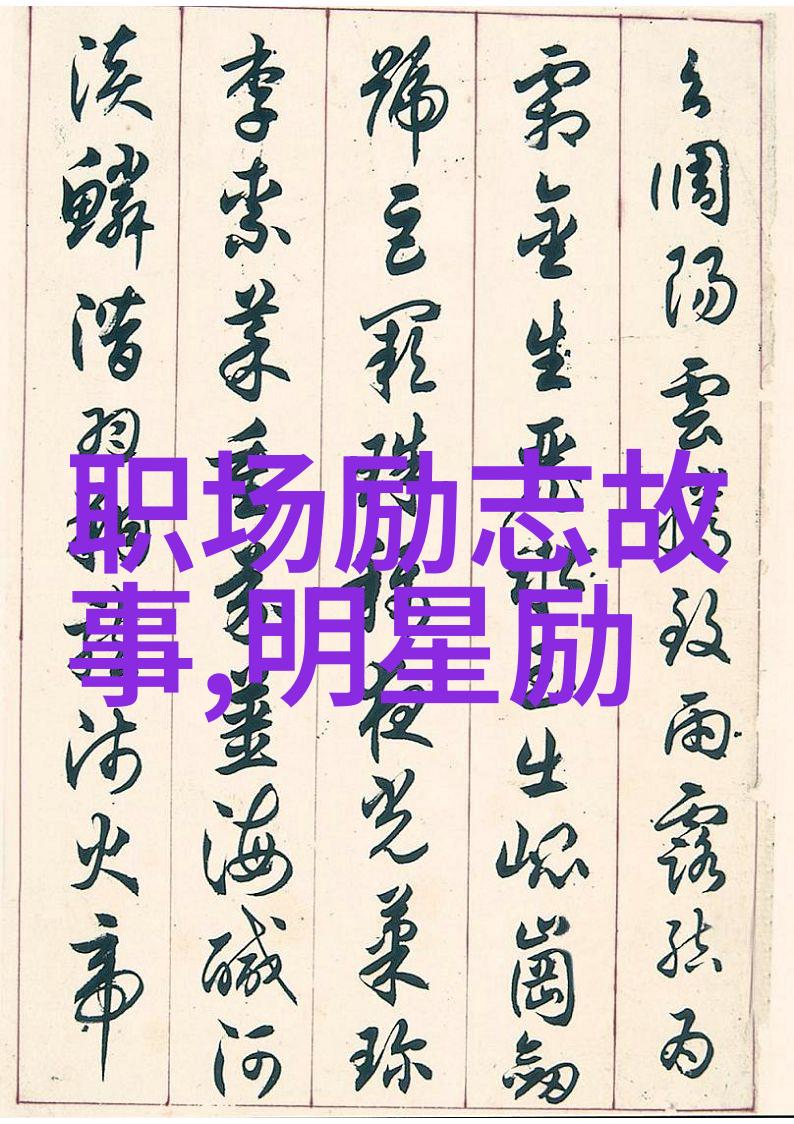 吕調陽雲騰致雨露結為
霜金生麗水玉出崐崗劒
號巨闕珠稱夜光菓珍
李柰菜重芥薑海鹹河
淡鱗潛羽翔龍師火帝
职场励志故
事,明星励